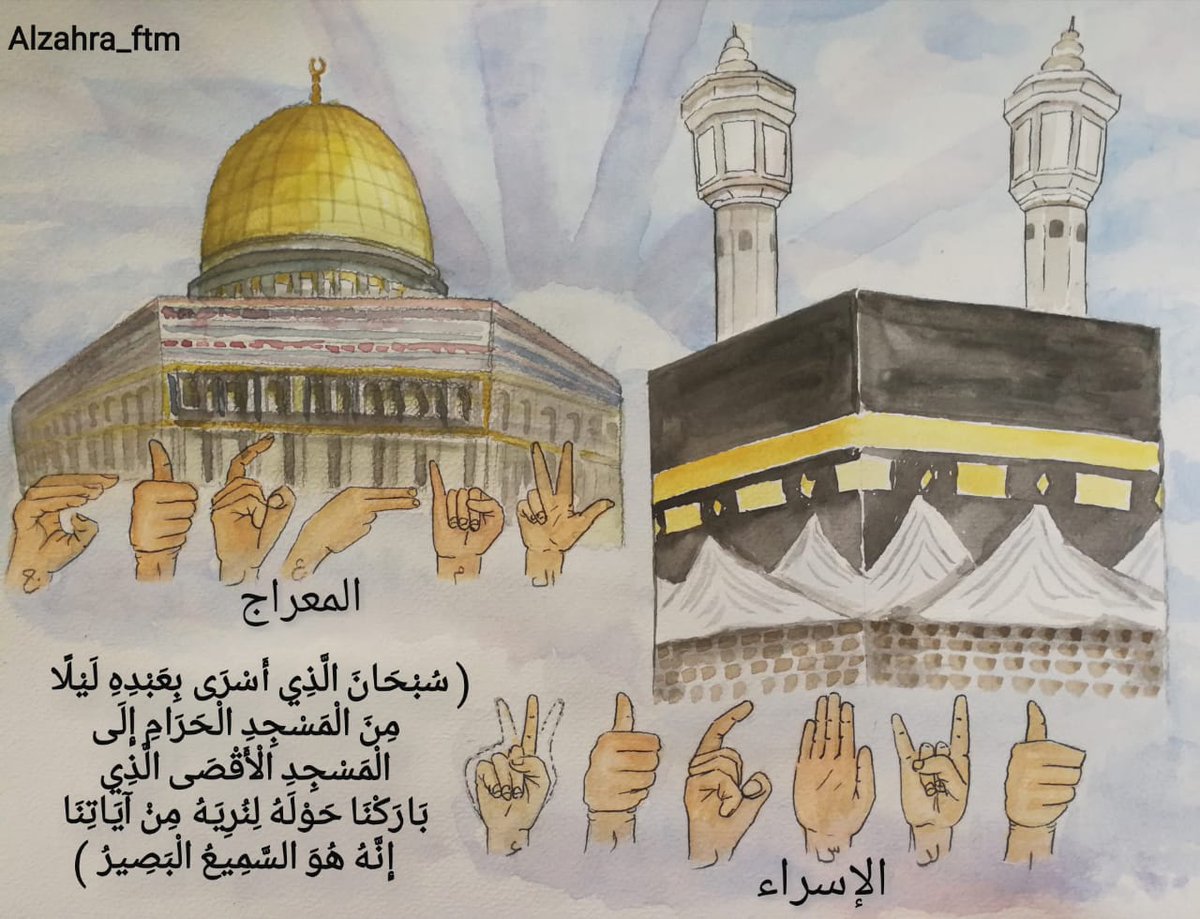 Alzahra_ftm
ال م ع ر ا ج
المعراج
( سُبْحَانَ الَّذِي أَسْرَى بِعَبْدِهِ لَيْلًا
مِنَ الْمَسْجِدِ الْحَرَامِ إِلَى
الْمَسْجِدِ الْأَقْصَى الَّذِي
بَارَكْنَا حَوْلَهُ لِنُرِيَهُ مِنْ آيَاتِنَا
إِنَّهُ هُوَ السَّمِيعُ الْبَصِيرُ )
ا لا س ر ا ء
الإسراء